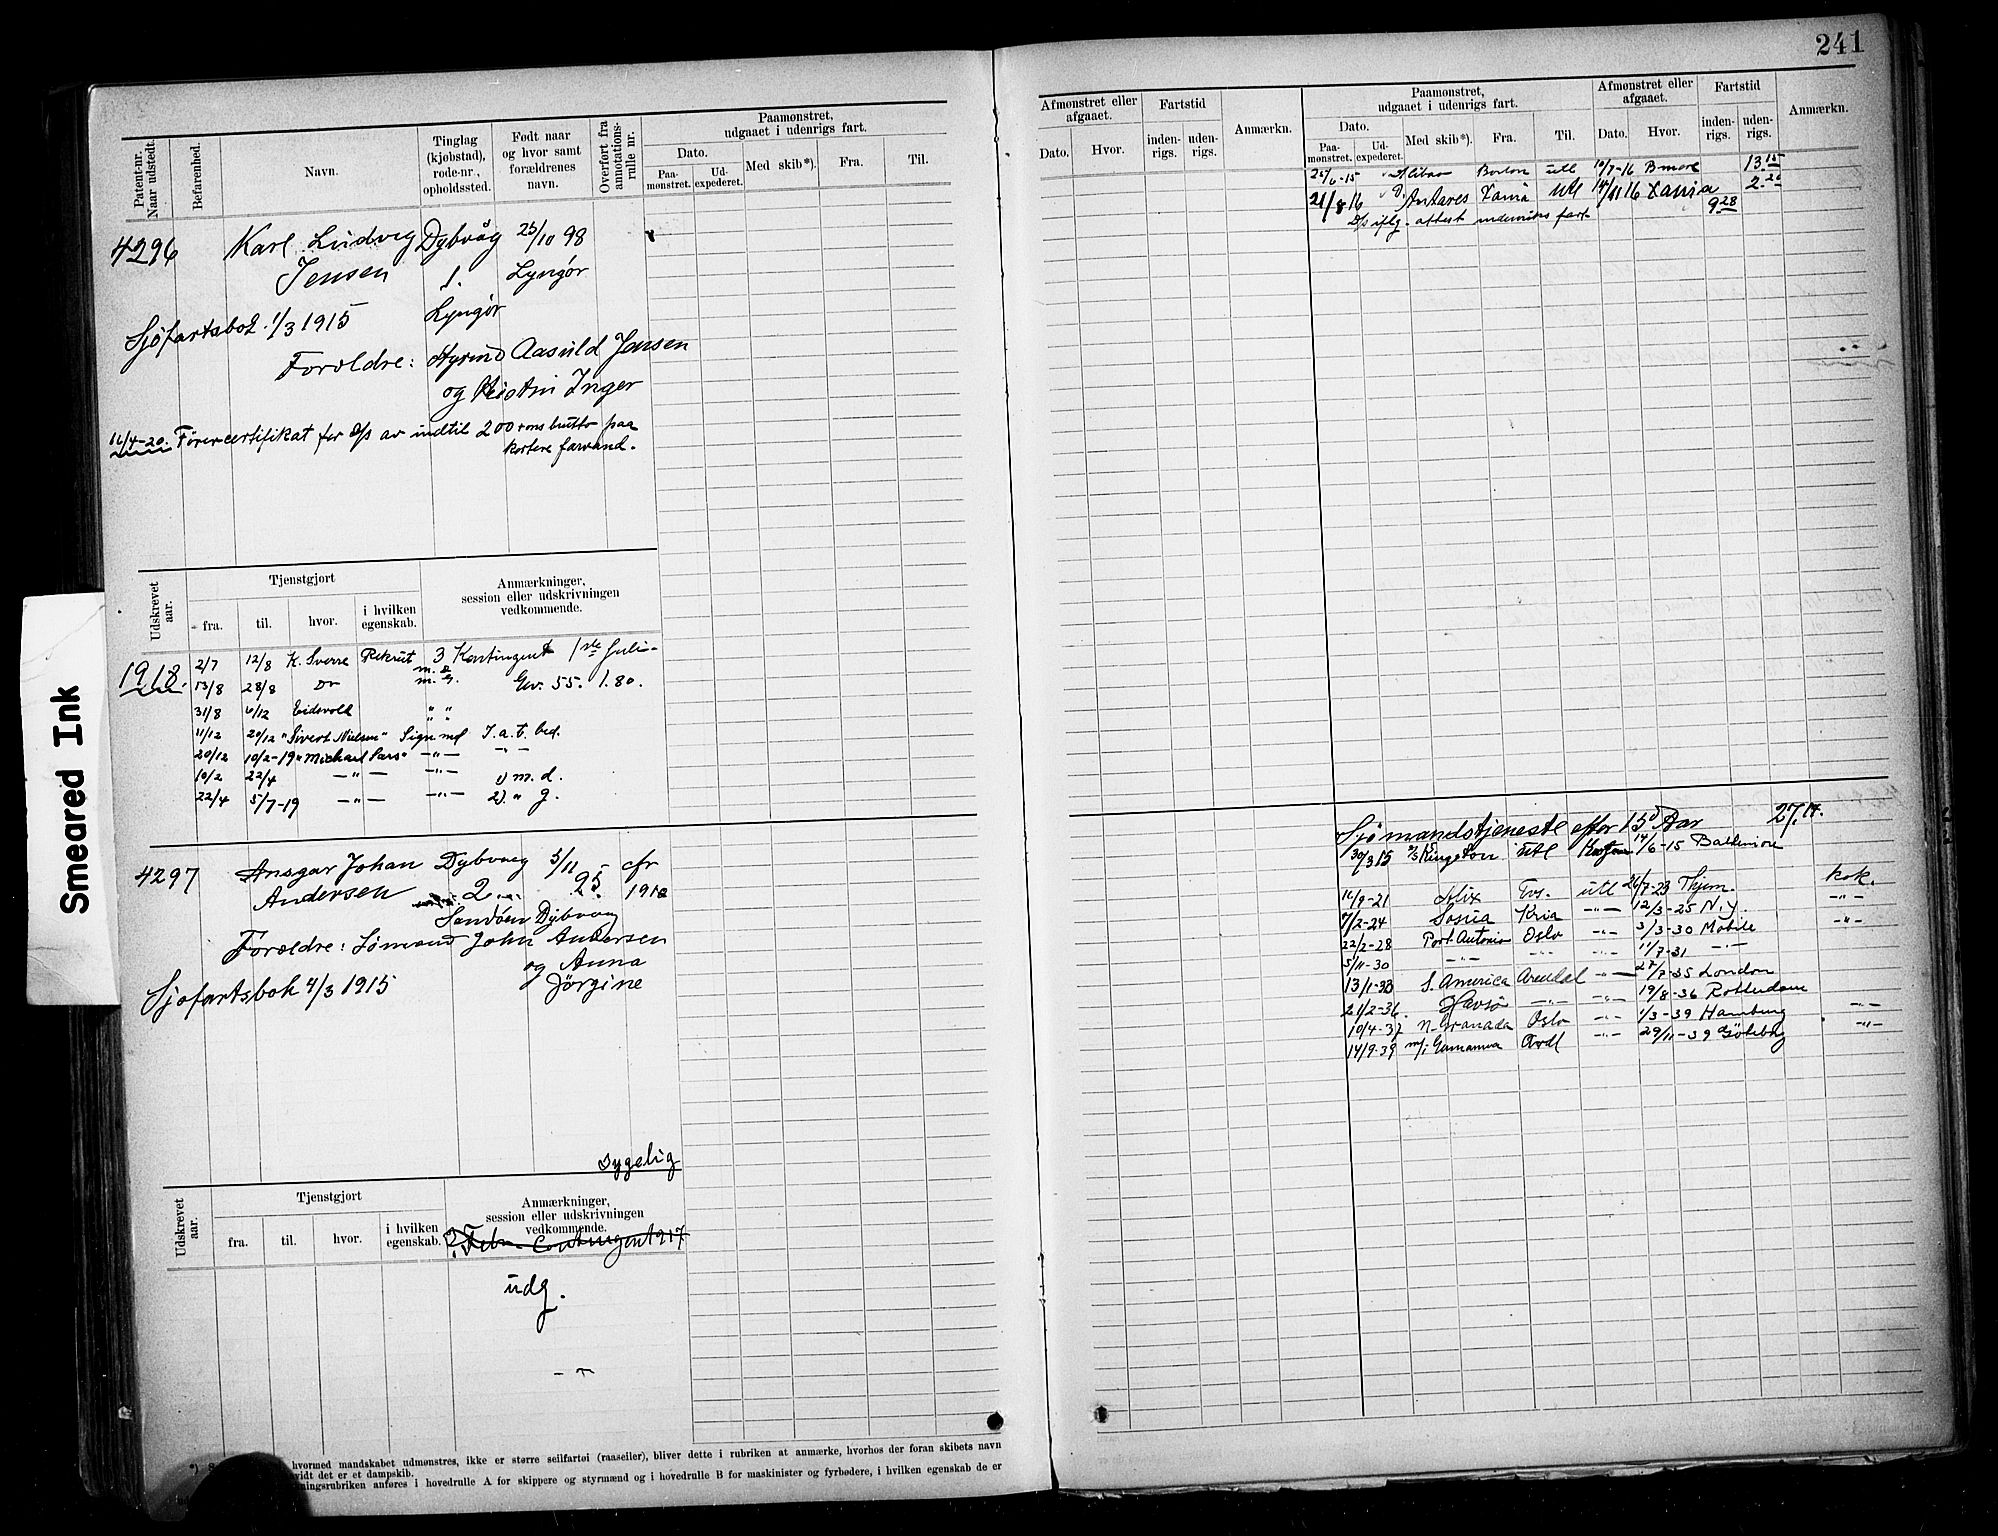 241
Patent-nr.
Naar udstedt.
Befarenhed.
Navn.
Tinglag
(kjøbstad),
rode-nr.,
opholdssted.
Født naar
og hvor samt
forældrenes
navn.
Overført fra
annotations-
rulle nr.
Paamønstret,
udgaaet i udenrigs fart.
Dato.
Paa-
mønstret.
Ud-
expederet.
Med skib*).
Fra.
Til.
4296
Karl Ludvig Dybvåg 23/10 98
Jensen 1. Lyngør
Sjøfartsbok 1/3 1915 Lyngør
Foreldre: Styrmd Aasuld Jensen
og Kristin Inger
Førercertifikat for D/s av indtil 200 tons brutto paa
kortere farvand.
Udskrevet
aar.
Tjenstgjort
fra.
til.
hvor.
i hvilken
egenskab.
Anmærkninger,
session eller udskrivningen
vedkommende.
1918. 2/7 12/8 K. Sverre Rekrut 3 Kontingent 1ste Juli
13/8 28/8 Do m. G. Gev. 55. 1.80.
31/8 Eidsvold " "
11/12 20/12 "Sivert Nielsen" Sign md I.a.t. bed.
20/12 10/2-19 "Michael Sars" —"— —"—
10/2 22/4 —"— —"— 1) m. d.
22/4 5/7-19 —"— —"— 2) " g.
4297 Ansgar Johan Dybvaag 5/11 cfr
Andersen 2 95
Sandøen Dybvaag
Foreldre: Sømand John Andersen
og Anna
Sjøfartsbok 4/3 1915 Jørgine
sygelig
Udskrevet
aar.
Tjenstgjort
fra.
til.
hvor.
i hvilken
egenskab.
Anmærkninger,
session eller udskrivningen
vedkommende.
2. Febr. Contingent 1917
udg.
hvormed mandskabet udmønstres, ikke er større seilfartøi (raaseiler), bliver dette i rubriken at anmærke, hvorhos der foran skibets navn
vidt det er et dampskib.
ningsrubriken anføres i hovedrulle A for skippere og styrmænd og i hovedrulle B for maskinister og fyrbødere, i hvilken egenskab de er
Smeared Ink
Afmønstret eller
afgaaet.
Dato.
Hvor.
Fartstid
inden-
rigs.
uden-
rigs.
Anmærkn.
Paamønstret,
udgaaet i udenrigs fart.
Dato.
Paa-
mønstret.
Ud-
expederet.
Med skib*).
Fra.
Til.
Afmønstret eller
afgaaet.
Dato.
Hvor.
Fartstid
inden-
rigs.
uden-
rigs.
Anmærkn.
Boston utl 10/7-16 B-more 13 15
21/8 16 D. Antares utl 16 2 20
D/s iflg. attest indenriks fart 9 28
Sjømandstjeneste efter 15 Aar 27.14.
30/3 15 D/s Kingston utl 14/6-15 Baltimore
16/9-21 Alix Tvs. utl 26/7-23 Thjem. kok.
7/2-24 Sosua Kria —"— 12/3-25 N.Y. —"—
22/2-28 Port Antonio Oslo —"— 3/3-30 Mobile —"—
5/11-30 —"— —"— —"— 11/7-31 —"—
13/1-33 S. America Arendal —"— 27/7-35 London
21/2-36. Havsø —"— —"— 19/8-36 Rotterdam
10/4-37 N-Granada Oslo —"— 1/3-39 Hamburg —"—
14/9-39 Ardl —"— 29/11-39 Göteborg —"—